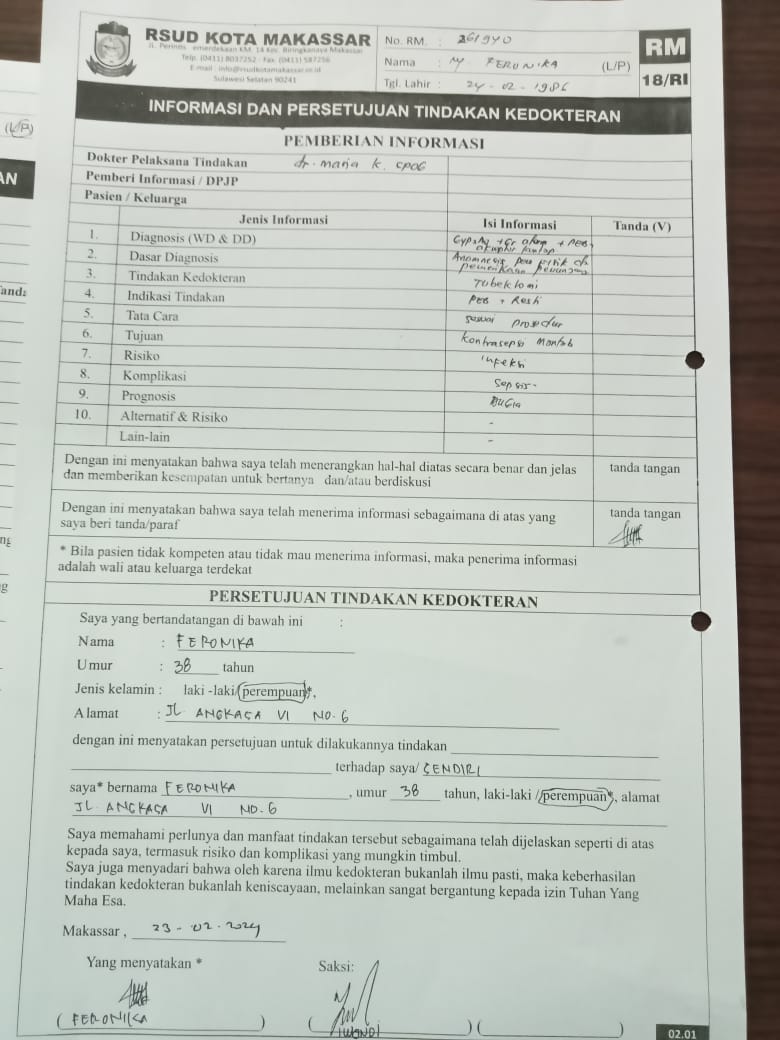 RSUD KOTA MAKASSAR
Jl. Perintis emerdekaan KM. 14 Kec. Biringkanaya Makassar
Telp. (0411) 8037252 - Fax. (0411) 587256
E-mail : info@rsudkotamakassar.or.id
Sulawesi Selatan 90241
No. RM. : 261940
Nama : Ny FERONIKA (L/P)
Tgl. Lahir : 24-02-1986
RM
18/RI
INFORMASI DAN PERSETUJUAN TINDAKAN KEDOKTERAN
PEMBERIAN INFORMASI
Dokter Pelaksana Tindakan dr. maria k. SPOG
Pemberi Informasi / DPJP
Pasien / Keluarga
Jenis Informasi Isi Informasi Tanda (V)
1. Diagnosis (WD & DD) + PEB
2. Dasar Diagnosis Anamnesis
3. Tindakan Kedokteran Tubektomi
4. Indikasi Tindakan PEB +
5. Tata Cara sesuai prosedur
6. Tujuan kontrasepsi mantab
7. Risiko infeksi
8. Komplikasi Sepsis
9. Prognosis
10. Alternatif & Risiko -
Lain-lain -
Dengan ini menyatakan bahwa saya telah menerangkan hal-hal diatas secara benar dan jelas
dan memberikan kesempatan untuk bertanya dan/atau berdiskusi
tanda tangan
Dengan ini menyatakan bahwa saya telah menerima informasi sebagaimana di atas yang
saya beri tanda/paraf
tanda tangan
* Bila pasien tidak kompeten atau tidak mau menerima informasi, maka penerima informasi
adalah wali atau keluarga terdekat
PERSETUJUAN TINDAKAN KEDOKTERAN
Saya yang bertandatangan di bawah ini :
Nama : FERONIKA
Umur : 38 tahun
Jenis kelamin : laki -laki/perempuan*,
Alamat : JL ANGKASA VI NO. 6
dengan ini menyatakan persetujuan untuk dilakukannya tindakan
terhadap saya/ SENDIRI
saya* bernama FERONIKA, umur 38 tahun, laki-laki /perempuan*, alamat
JL. ANGKASA VI NO. 6
Saya memahami perlunya dan manfaat tindakan tersebut sebagaimana telah dijelaskan seperti di atas
kepada saya, termasuk risiko dan komplikasi yang mungkin timbul.
Saya juga menyadari bahwa oleh karena ilmu kedokteran bukanlah ilmu pasti, maka keberhasilan
tindakan kedokteran bukanlah keniscayaan, melainkan sangat bergantung kepada izin Tuhan Yang
Maha Esa.
Makassar , 23-02-2024
Yang menyatakan * Saksi:
( FERONIKA ) ( IWANDI ) ( )
02.01